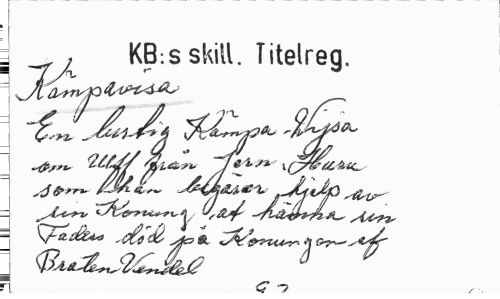 KB:s skill. Titelreg.
Kämpavisa
En lustig Kämpa-Wijsa
om Ulf från Jern, Huru
som han begärar hjelp av
sin Konung at hämna sin
Faders död på Konungen af
Braten Vendel